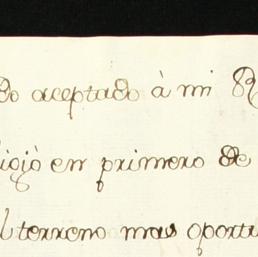 do aceptado à mi R
igiò en primero de
l terreno mas oportu